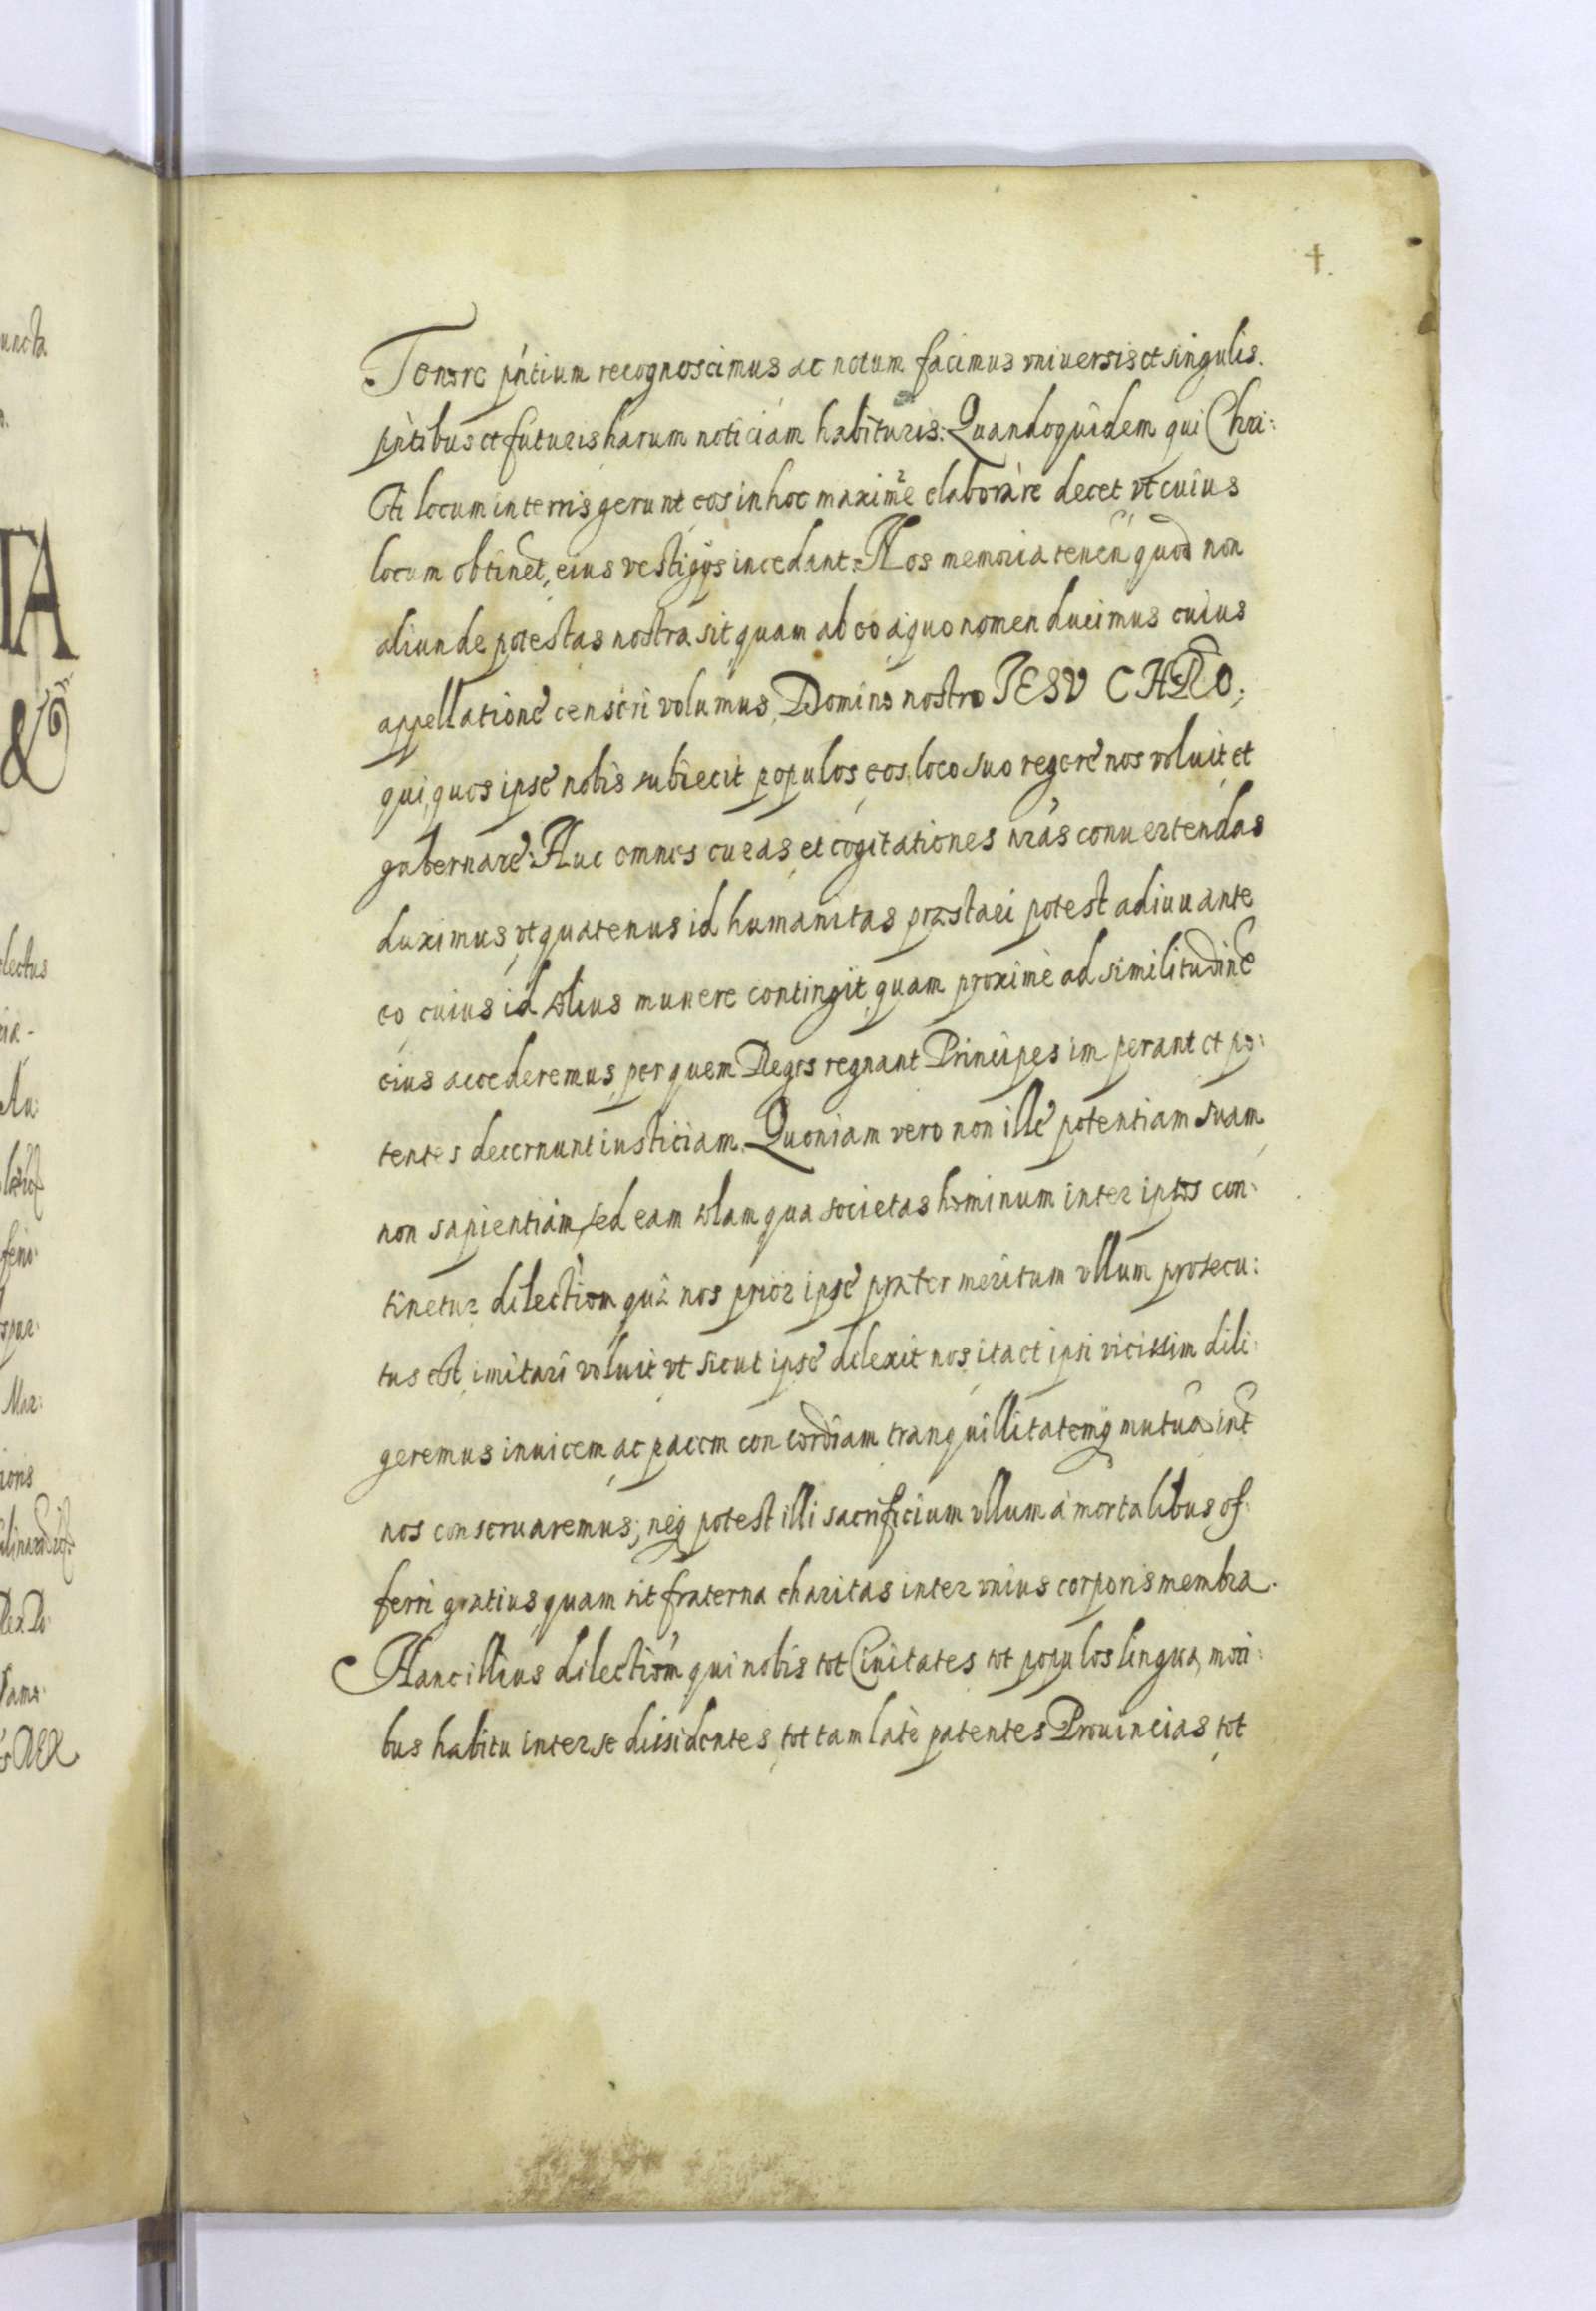 †.
Tenore pńtium recognoscimus ac notum facimus vniuersis et singulis.
pńtibus et futuris harum noticiam habituris: Quandoquidem qui Chri:
sti locum in terris gerunt eos in hoc maximè elaborare decet vt cuius
locum obtinet, eius vestigijs incedant: Nos memoria tenen̄ quod non
aliunde potestas nostra sit quam ab eo à quo nomen ducimus cuius
appellatione censeri volumus, Domino nostro IESV CHRŌ;
qui, quos ipse nobis subiecit populos eos loco suo regere nos voluit et
gubernare: Huc omnes curas, et cogitationes nr̄as conuertendas
duximus, vt quatenus id humanitas præstari potest adiuuante
eo cuius id solius munere contingit, quam proximè ad similitudinē
eius accederemus, per quem Reges regnant Principes imperant et po:
tentes decernunt iusticiam. Quoniam vero non ille potentiam suam,
non sapientiam, sed eam solam qua societas hominum inter ipsos con:
tinetur dilectiōm quâ nos prior ipse præter meritum vllum prosecu:
tus est, imitari voluit, vt sicut ipse dilexit nos, ita et ipsi vicissim dili:
geremus inuicem, ac pacem concordiam tranquillitatemq̨ mutuā int̄
nos conseruaremus; neq̨ potest illi sacrificium vllum à mortalibus of:
ferri gratius quam sit fraterna charitas inter vnius corporis membra.
Hanc illius dilectiōm qui nobis tot Ciuitates tot populos lingua, mori:
bus habitu inter se dissidentes, tot tam latè patentes Prouincias, tot
uncta
TA
&
lectus
Au:
feri:
Mar:
ions